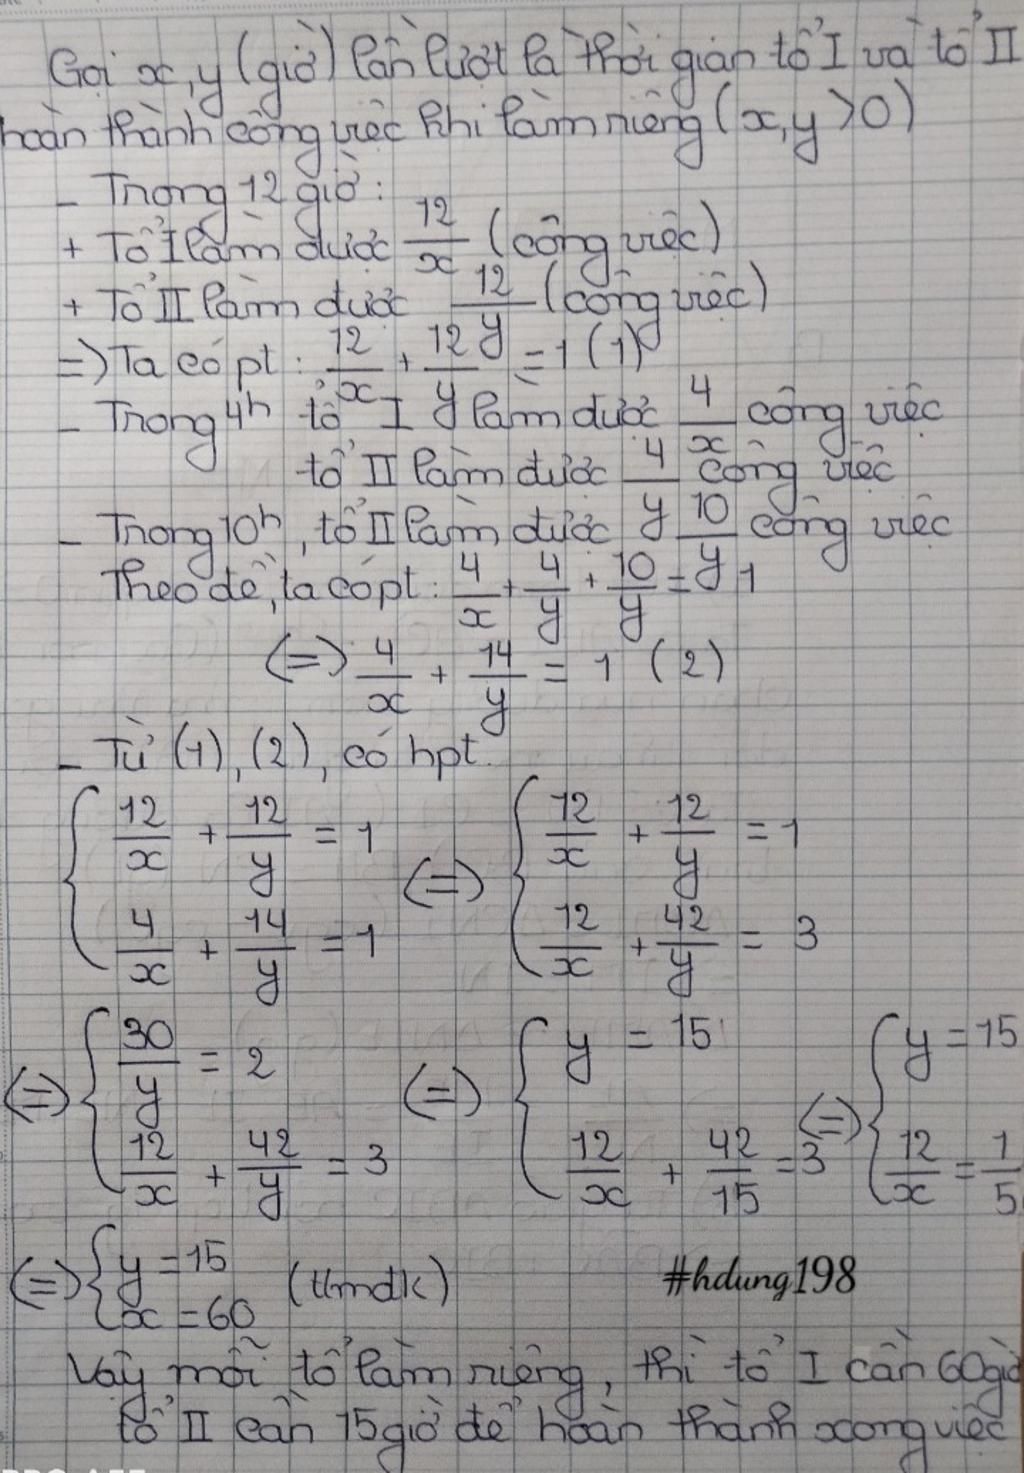 Gọi x, y (giờ) lần lượt là thời gian tổ I và tổ II
hoàn thành công việc khi làm riêng (x, y > 0)
- Trong 12 giờ:
+ Tổ I làm được 12/x (công việc)
+ Tổ II làm được 12/y (công việc)
=> Ta có pt: 12/x + 12/y = 1 (1)
- Trong 4h tổ I làm được 4/x công việc
tổ II làm được 4/y công việc
- Trong 10h, tổ II làm được 10/y công việc
Theo đề, ta có pt: 4/x + 4/y + 10/y = 1
(=) 4/x + 14/y = 1 (2)
- Từ (1), (2), có hpt.
{ 12/x + 12/y = 1 (=) { 12/x + 12/y = 1
4/x + 14/y = 1 12/x + 42/y = 3
(=) { 30/y = 2 (=) { y = 15 (=) { y = 15
12/x + 42/y = 3 12/x + 42/15 = 3 12/x = 1/5
(=) { y = 15 (tmđk)
x = 60
#hdung198
Vậy mỗi tổ làm riêng, thì tổ I cần 60 giờ
tổ II cần 15 giờ để hoàn thành xong việc